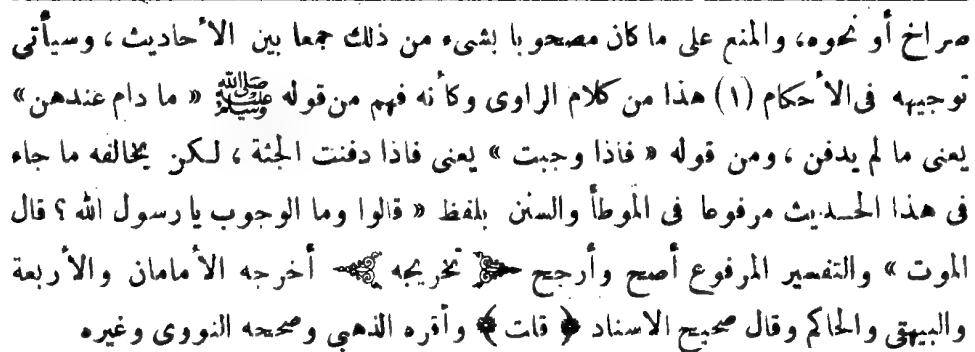 صراخ أو نحوه، والمنع على ما كان مصحوبا بشىء من ذلك جمعا بين الأحاديث ، وسيأتى
توجيهه فى الأحكام (١) هذا من كلام الراوى وكأنه فهم من قوله ﷺ « ما دام عندهن»
يعنى ما لم يدفن ، ومن قوله « فاذا وجبت » يعنى فاذا دفنت الجثة ، لكن يخالفه ما جاء
فى هذا الحديث مرفوعا فى الموطأ والسنن بلفظ « قالوا وما الوجوب يا رسول الله ؟ قال
الموت » والتفسير المرفوع أصح وأرجح ﴿ تخريجه ﴾ أخرجه الأمامان والأربعة
والبيهقى والحاكم وقال صحيح الاسناد ﴿ قلت ﴾ وأقره الذهبى وصححه النووى وغيره